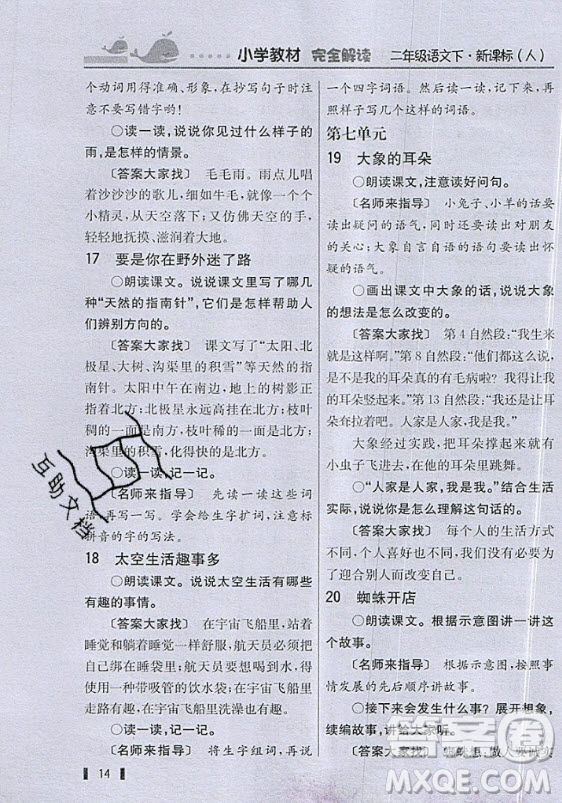 小学教材 完全解读 二年级语文下·新课标(人)
个动词用得准确、生动,在抄写句子时还
要不要写错字?
○读一读,说说你见过什么样子的
雨,是怎样的情景。
〔答案大家找〕 毛毛雨。雨点儿唱
着沙沙沙的歌儿,细如牛毛,就像一个个
小精灵,从天空落下;又仿佛天空的手,
轻轻地抚摸、滋润着大地。
17 要是你在野外迷了路
○朗读课文。说说课文里写了哪几
种“天然的指南针”,它们是怎样帮助人
们辨别方向的。
〔答案大家找〕 课文写了“太阳、北
极星、大树、沟渠里的积雪”等天然的指
南针。太阳中午在南边,地上的树影正
指着北方;北极星永远高挂在北方;枝叶
稠的一面是南方,枝叶稀的一面是北方;
沟渠里的积雪,化得快的是北方。
○读一读,记一记。
〔名师来指导〕 先读一读这些词
语,再写一写。学会给生字扩词,注意标
拼音的字的写法。
18 太空生活趣事多
○朗读课文。说说太空生活有哪些
有趣的事情。
〔答案大家找〕 在宇宙飞船里,站着
睡觉和躺着睡觉一样舒服,航天员必须把
自己绑在睡袋里;在宇宙飞船里,航天员
使用一种带吸管的饮水袋;在宇宙飞船里
走路有趣,在宇宙飞船里洗澡也有趣。
○读一读,记一记。
〔名师来指导〕 将生字组词,再说
14
一个四字词语。读一读后,记下来,再
照样子写几个这样的词语。
第七单元
19 大象的耳朵
○朗读课文,注意读好问句。
〔名师来指导〕 小兔子、小羊的话要
读出疑问的语气,同时还要读出对朋友
的关心;大象自言自语的语句要读出怀
疑的语气。
○画出课文中大象的话,说说大象
的想法是怎么改变的。
〔答案大家找〕 第4自然段:“我生来
就是这样啊。”第8自然段:“他们都这么
说,是不是我的耳朵真的有毛病啦?我得
让我的耳朵竖起来。”第13自然段:“我还是让耳
朵耷拉着吧。人家是人家,我是我。”
大象经过实践,把耳朵竖起来后,有
小虫子飞进去,在耳朵里跳舞。
○“人家是人家,我是我。”结合生活
实际,说说你是怎么理解这句话的。
〔答案大家找〕 每个人的生活方式
不同,我们没有必要因为别人的做法而
改变自己。
20 蜘蛛开店
○朗读课文。根据示意图讲一讲这
个故事。
〔名师来指导〕 根据示意图,按照事
情发展的先后顺序讲故事。
○接下来会发生什么事?展开想象,
续编故事,讲给大家听。
〔答案大家找〕
互助文档
答案圈
MXQE.COM